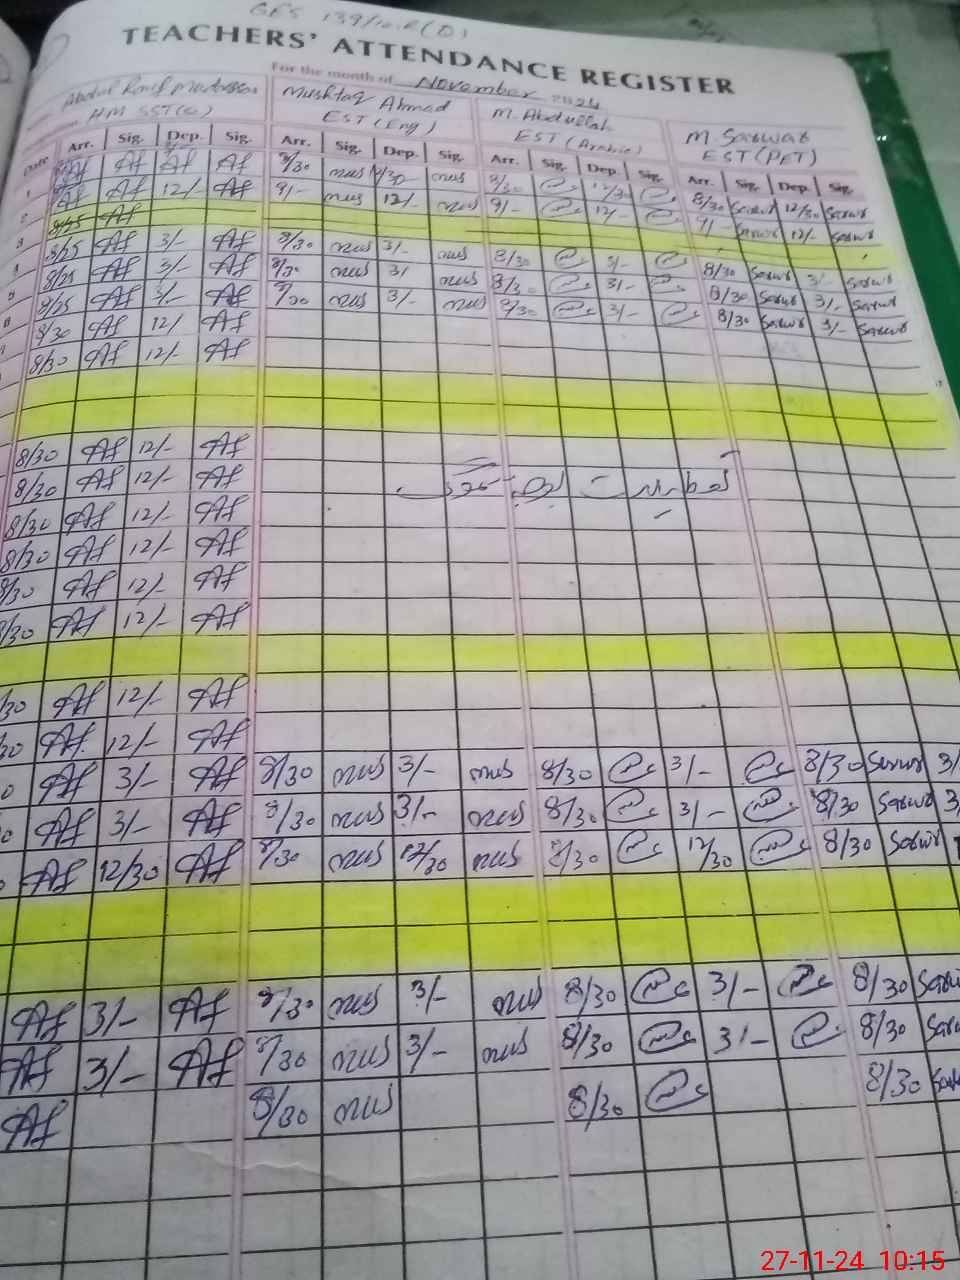 GES 139/10.R(D)
TEACHERS' ATTENDANCE REGISTER
For the month of November 2024
Abdul Rouf Mushtaq Ahmad M. Abdullah M. Sarwar
HM SST(G) EST (Eng) EST (Arabic) EST (PET)
Date Arr. Sig. Dep. Sig. Arr. Sig. Dep. Sig. Arr. Sig. Dep. Sig. Arr. Sig. Dep. Sig.
1 Af Af Af Af 8/30 mus 12/30 mus 8/30 12/30 8/30 Sarwar 12/30 Sarwar
2 Af 12/- Af 9/- mus 12/- mus 9/- 12/- 9/- Sarwar 12/- Sarwar
3 8/25 Af
4 8/25 Af 3/- Af 8/30 mus 3/- mus 8/30 3/- 8/30 Sarwar 3/- Sarwar
5 8/25 Af 3/- Af 8/30 mus 3/ mus 8/30 3/- 8/30 Sarwar 3/- Sarwar
6 8/25 Af 3/- Af 8/30 mus 3/- mus 8/30 3/- 8/30 Sarwar 3/- Sarwar
8/30 Af 12/ Af
8/30 Af 12/- Af
8/30 Af 12/- Af
8/30 Af 12/- Af
8/30 Af 12/- Af
8/30 Af 12/- Af
8/30 Af 12/- Af
8/30 Af 12/- Af
/30 Af 12/- Af
30 Af 12/- Af
0 Af 3/- Af 8/30 mus 3/- mus 8/30 3/- 8/30 Sarwar 3/
0 Af 3/- Af 8/30 mus 3/- mus 8/30 3/- 8/30 Sarwar 3/
Af 12/30 Af 8/30 mus 12/30 mus 8/30 12/30 8/30 Sarwar
Af 3/- Af 8/30 mus 3/- mus 8/30 3/- 8/30 Sarwa
Af 3/- Af 8/30 mus 3/- mus 8/30 3/- 8/30 Sarwa
Af 8/30 mus 8/30 8/30 Sarwa
27-11-24 10:15